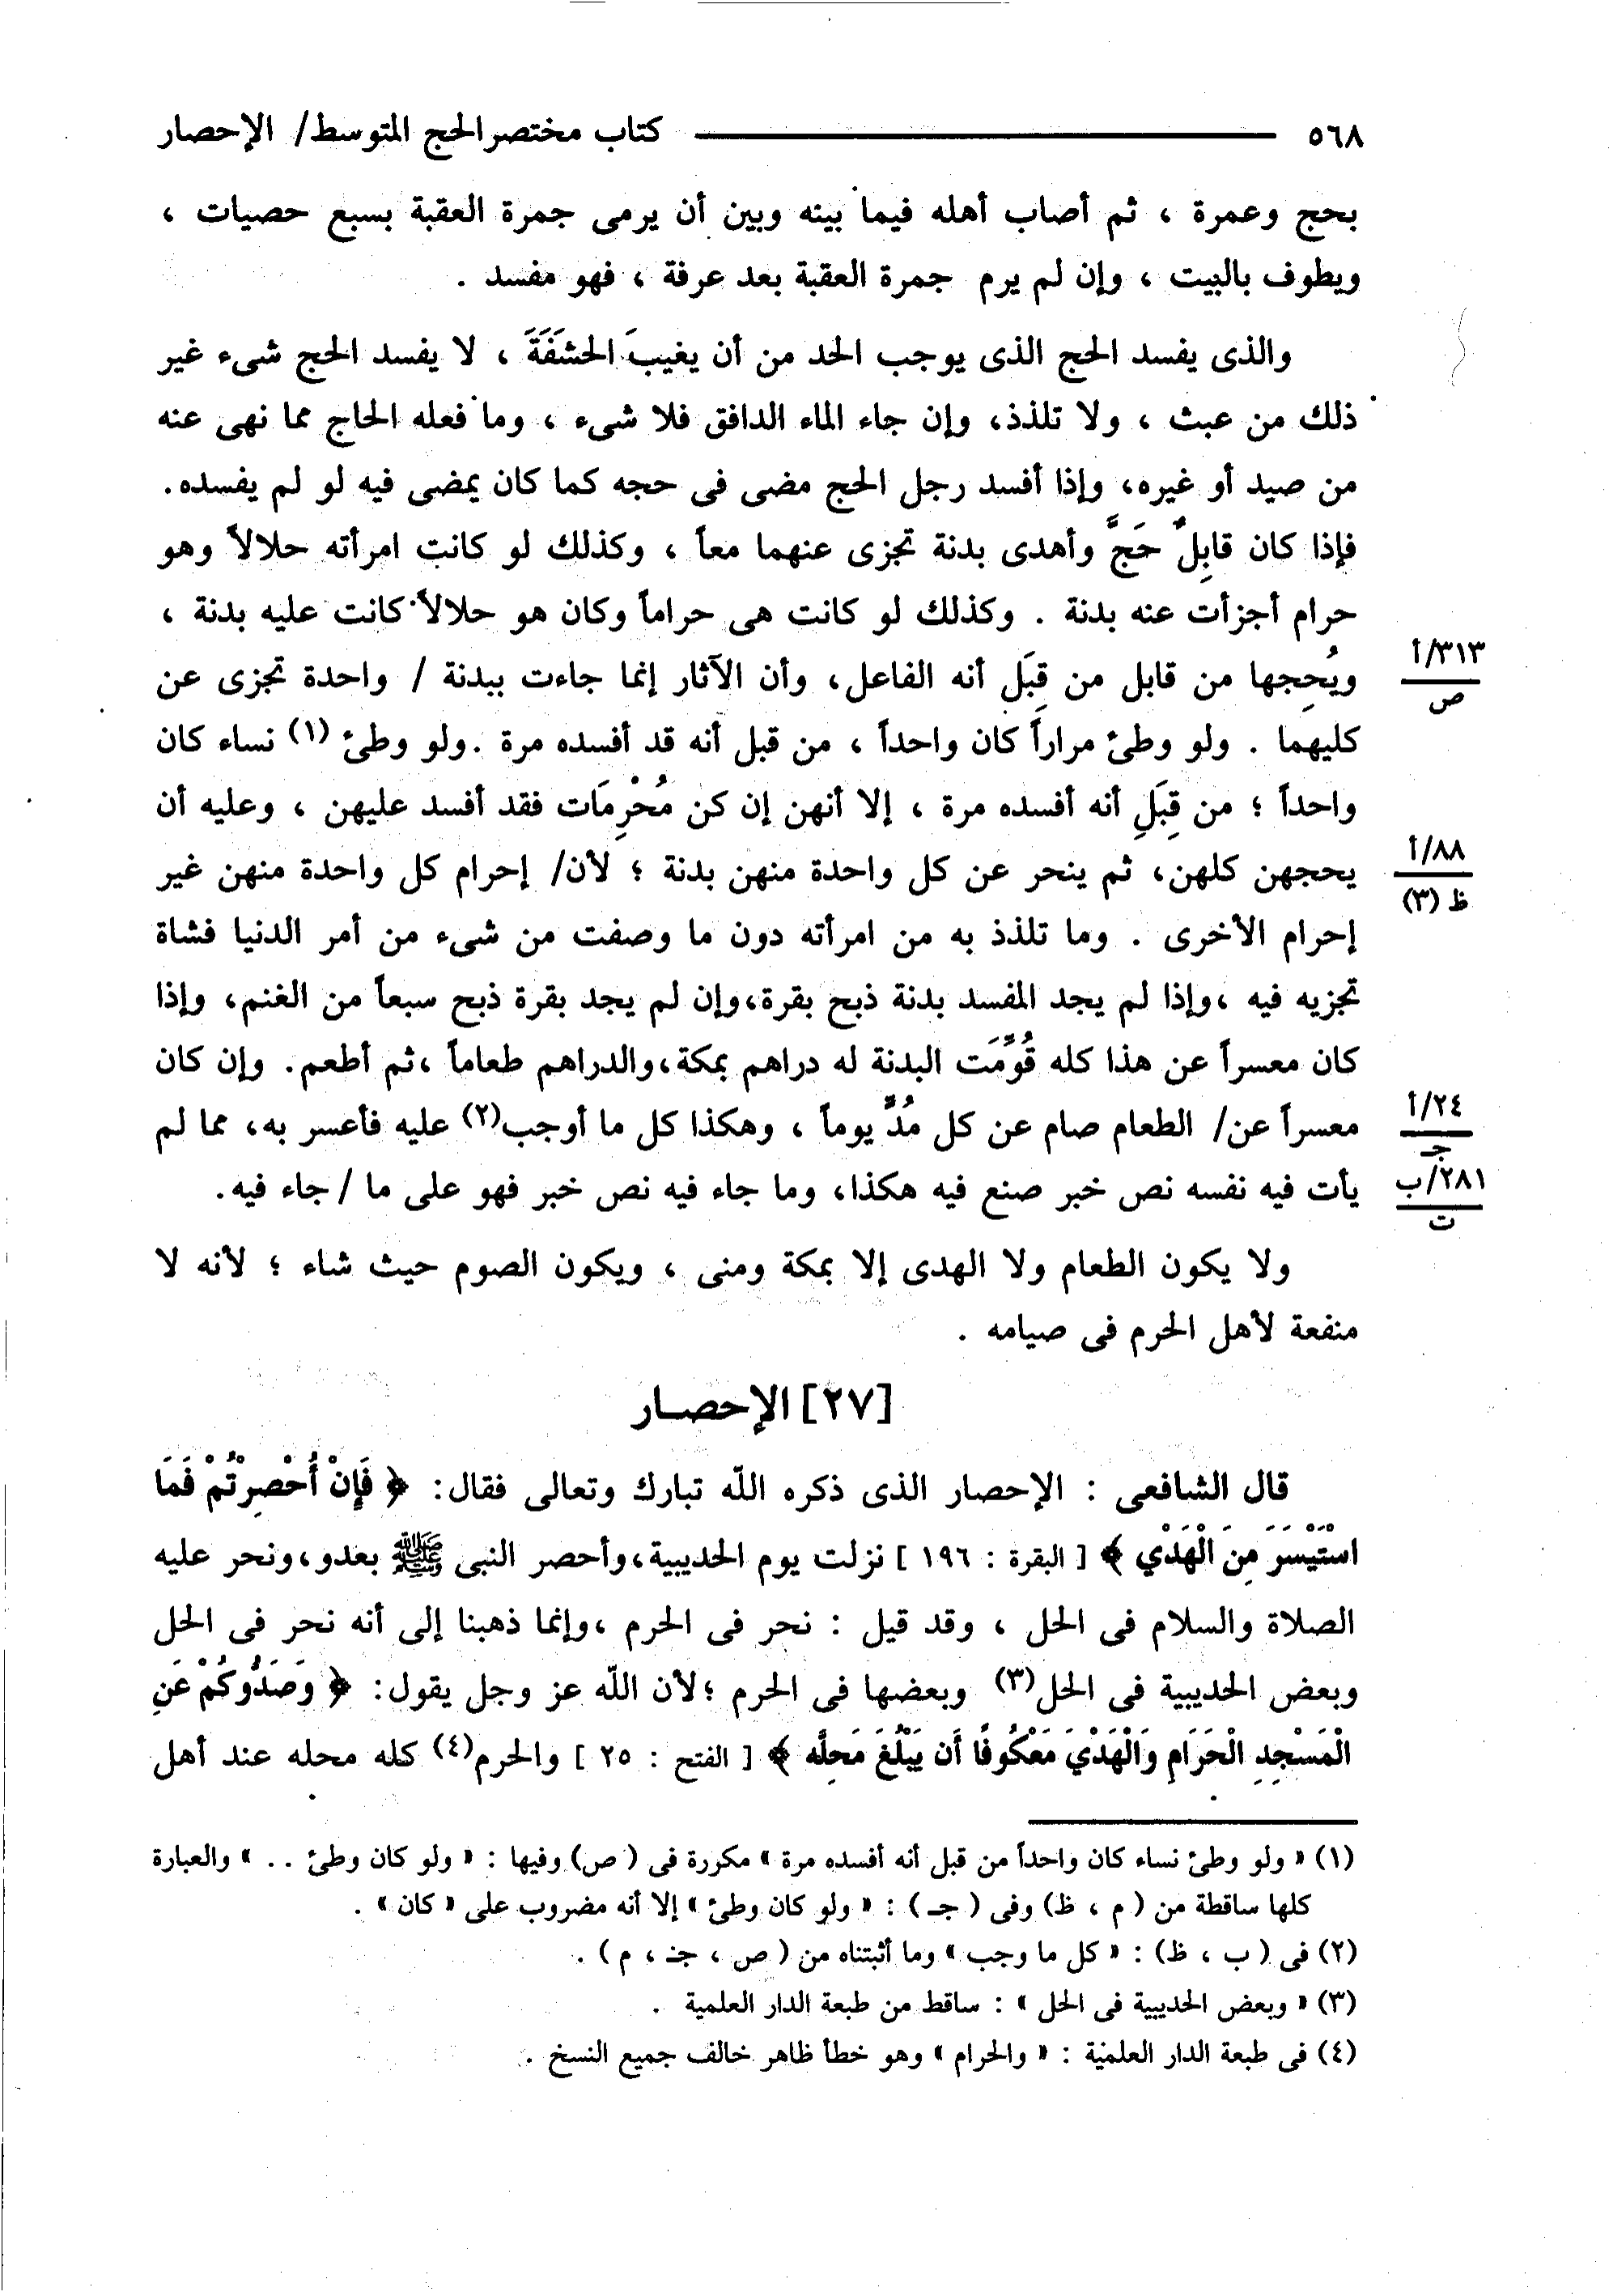 ٥٦٨ كتاب مختصر الحج المتوسط/ الإحصار
بحج وعمرة ، ثم أصاب أهله فيما بينه وبين أن يرمى جمرة العقبة بسبع حصيات ،
ويطوف بالبيت ، وإن لم يرم جمرة العقبة بعد عرفة ، فهو مفسد .
والذى يفسد الحج الذى يوجب الحد من أن يغيبَ الحشَفَةَ ، لا يفسد الحج شىء غير
ذلك من عبث ، ولا تلذذ، وإن جاء الماء الدافق فلا شىء ، وما فعله الحاج مما نهى عنه
من صيد أو غيره، وإذا أفسد رجل الحج مضى فى حجه كما كان يمضى فيه لو لم يفسده.
فإذا كان قابِلٌ حَجَّ وأهدى بدنة تجزى عنهما معاً ، وكذلك لو كانت امرأته حلالاً وهو
حرام أجزأت عنه بدنة . وكذلك لو كانت هى حراماً وكان هو حلالاً كانت عليه بدنة ،
ويُحِجها من قابل من قِبَلِ أنه الفاعل، وأن الآثار إنما جاءت ببدنة / واحدة تجزى عن
٣١٣/أ
ص
كليهما . ولو وطئ مراراً كان واحداً ، من قبل أنه قد أفسده مرة .ولو وطئ (١) نساء كان
واحداً ؛ من قِبَلِ أنه أفسده مرة ، إلا أنهن إن كن مُحْرِمَات فقد أفسد عليهن ، وعليه أن
يحجهن كلهن، ثم ينحر عن كل واحدة منهن بدنة ؛ لأن/ إحرام كل واحدة منهن غير
٨٨/أ
ظ (٣)
إحرام الأخرى . وما تلذذ به من امرأته دون ما وصفت من شىء من أمر الدنيا فشاة
تجزيه فيه ،وإذا لم يجد المفسد بدنة ذبح بقرة،وإن لم يجد بقرة ذبح سبعاً من الغنم، وإذا
كان معسراً عن هذا كله قُوِّمَت البدنة له دراهم بمكة،والدراهم طعاماً ،ثم أطعم. وإن كان
معسراً عن/ الطعام صام عن كل مُدٍّ يوماً ، وهكذا كل ما أوجب(٢) عليه فأعسر به، مما لم
٢٤/أ
جـ
يأت فيه نفسه نص خبر صنع فيه هكذا، وما جاء فيه نص خبر فهو على ما / جاء فيه.
٢٨١/ب
ت
ولا يكون الطعام ولا الهدى إلا بمكة ومنى ، ويكون الصوم حيث شاء ؛ لأنه لا
منفعة لأهل الحرم فى صيامه .
[٢٧] الإحصــار
قال الشافعى : الإحصار الذى ذكره اللّه تبارك وتعالى فقال: ﴿ فَإِنْ أُحْصِرْتُمْ فَمَا
اسْتَيْسَرَ مِنَ الْهَدْيِ ﴾ [ البقرة : ١٩٦ ] نزلت يوم الحديبية،وأحصر النبى ﷺ بعدو،ونحر عليه
الصلاة والسلام فى الحل ، وقد قيل : نحر فى الحرم ،وإنما ذهبنا إلى أنه نحر فى الحل
وبعض الحديبية فى الحل(٣) وبعضها فى الحرم ؛لأن اللّه عز وجل يقول: ﴿ وَصَدُّوكُمْ عَنِ
الْمَسْجِدِ الْحَرَامِ وَالْهَدْيَ مَعْكُوفًا أَن يَبْلُغَ مَحِلَّه ﴾ [ الفتح : ٢٥ ] والحرم(٤) كله محله عند أهل
(١) « ولو وطئ نساء كان واحداً من قبل أنه أفسده مرة » مكررة فى ( ص) وفيها : « ولو كان وطئ . . » والعبارة
كلها ساقطة من ( م ، ظ) وفى ( جـ ) : « ولو كان وطئ » إلا أنه مضروب على « كان » .
(٢) فى ( ب ، ظ) : « كل ما وجب » وما أثبتناه من ( ص ، جـ ، م ) .
(٣) « وبعض الحديبية فى الحل » : ساقط من طبعة الدار العلمية .
(٤) فى طبعة الدار العلمية : « والحرام » وهو خطأ ظاهر خالف جميع النسخ .